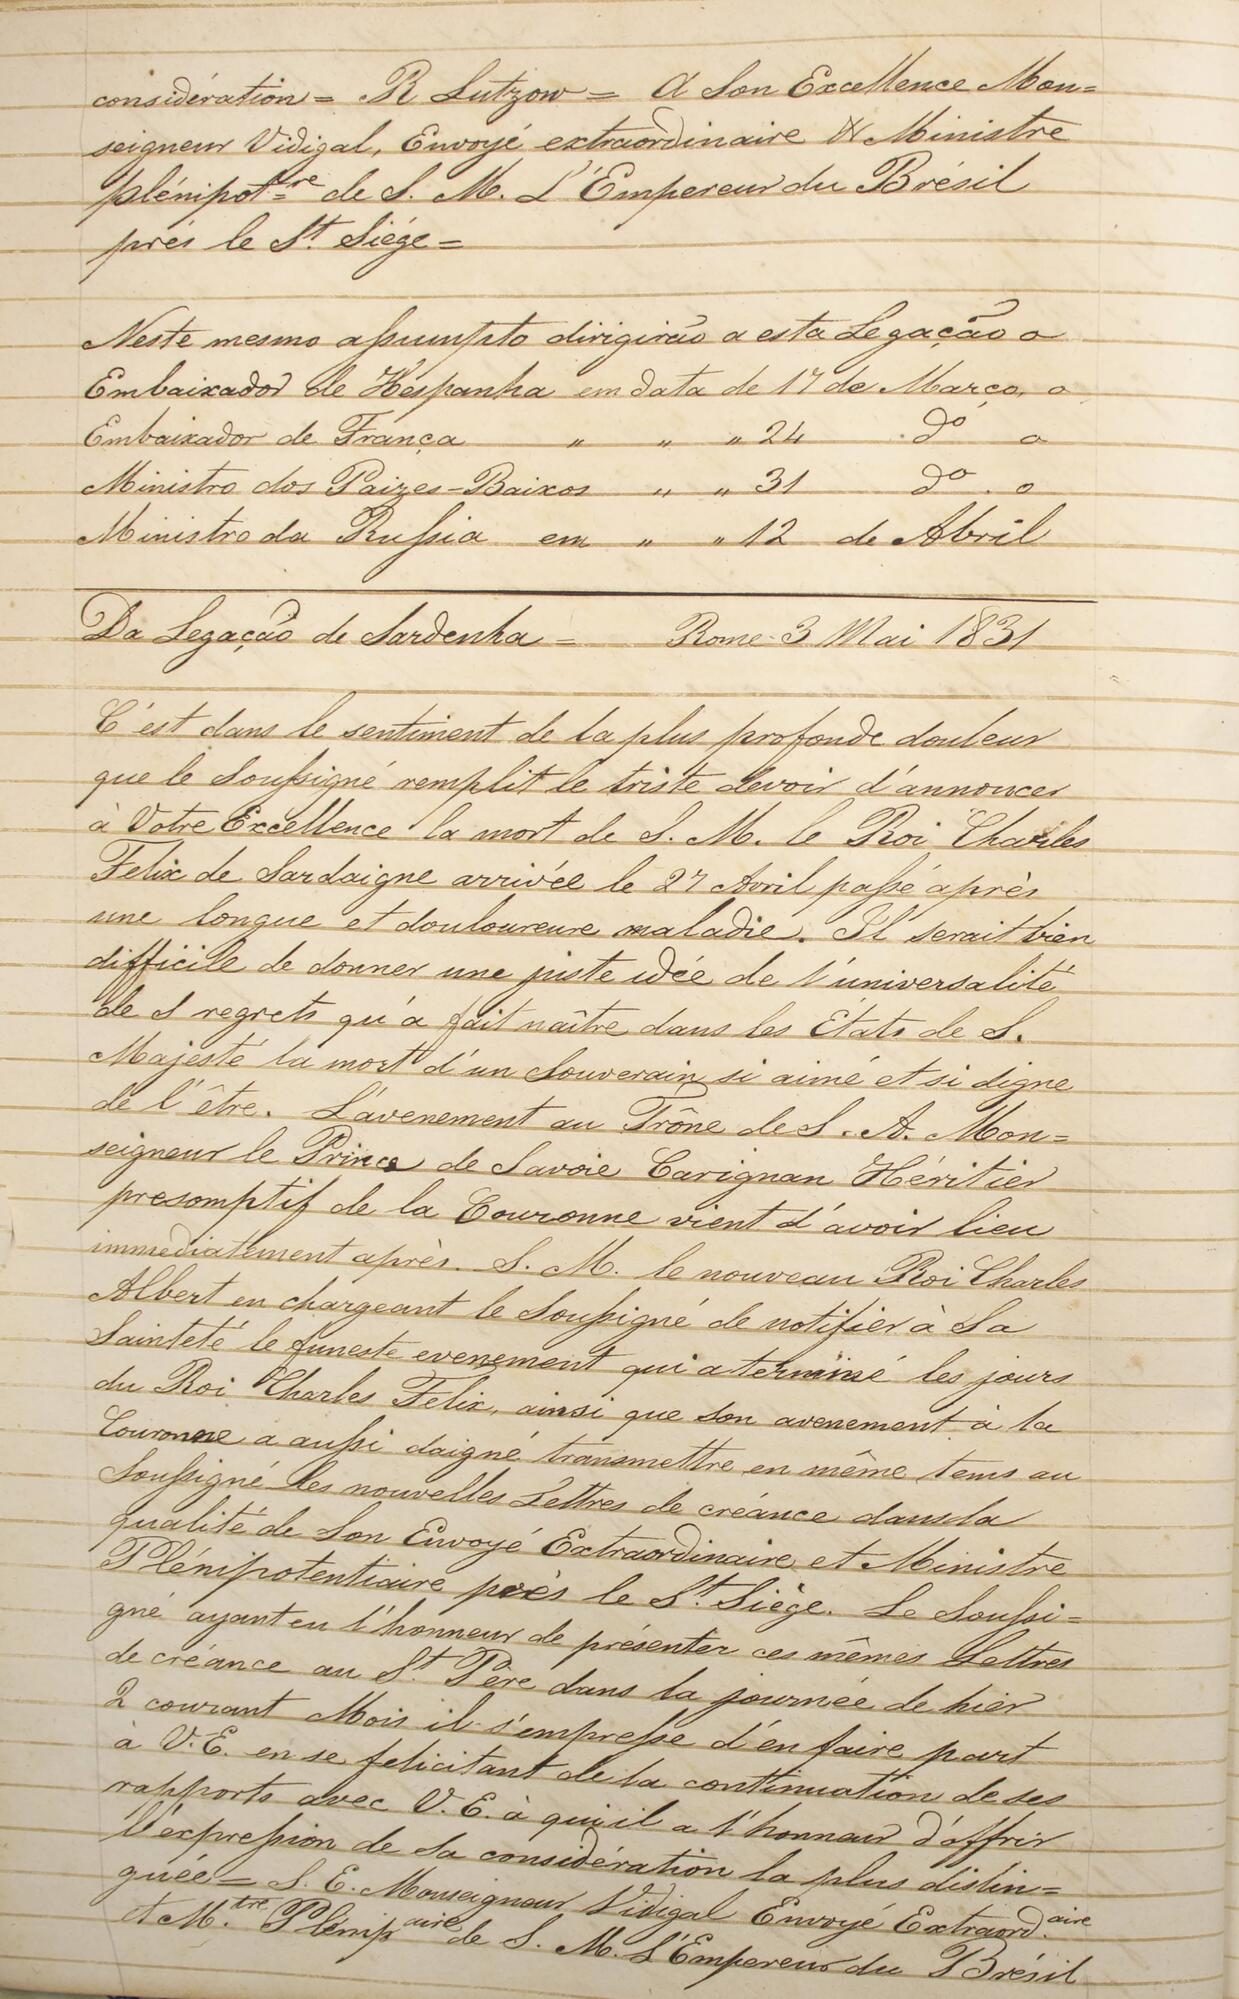 considération = R Lutzow = A Son Excellence Mon=
seigneur Vidigal, Envoyé extraordinaire & Ministre
plénipot.re de S. M. L'Empereur du Brésil
prés le St. Siége =
Neste mesmo assumpto dirigirão a esta Legação o
Embaixador de Hespanha em data de 17 de Março, o
Embaixador de França " " " 24 do o
Ministro dos Paizes-Baixos " " 31 do. o
Ministro da Russia em " " 12 de Abril
Da Legação de Sardenha = Rome 3 Mai 1831
C'est dans le sentiment de la plus profonde douleur
que le Soussigné remplit le triste devoir d'annoncer
à Votre Excellence la mort de S. M. le Roi Charles
Felix de Sardaigne arrivée le 27 Avril passé après
une longue et douloureure maladie. Il serait bien
difficile de donner une juste idée de l'universalité
de s regrets qu'a fait naître dans les États de S.
Majesté la mort d'un Souverain si aimé et si digne
de l'être. L'avenement au Trône de S. A. Mon=
seigneur le Prince de Savoie Carignan Héritier
presomptif de la Couronne vient d'avoir lieu
immediatement après. S. M. le nouveau Roi Charles
Albert en chargeant le Soussigné de notifier à Sa
Sainteté le funeste evenement qui a terminé les jours
du Roi Charles Felix, ainsi que son avenement à la
Couronne a aussi daigné transmettre en même tems au
Soussigné les nouvelles Lettres de créance dans la
qualité de Son Envoyé Extraordinaire et Ministre
Plénipotentiaire près le St. Siège. Le Soussi=
gné ayant eu l'honneur de présenter ces mêmes Lettres
de créance au St. Père dans la journée de hier
2 courant Mois il s'empresse d'en faire part
à V. E. en se felicitant de la continuation de ses
rapports avec V. E. à qui il a l'honneur d'offrir
l'expression de sa considération la plus distin=
guée = S. E. Monseigneur Vidigal Envoyé Extraord.aire
et M.tre Plénip.aire de S. M. L'Empereur du Brésil